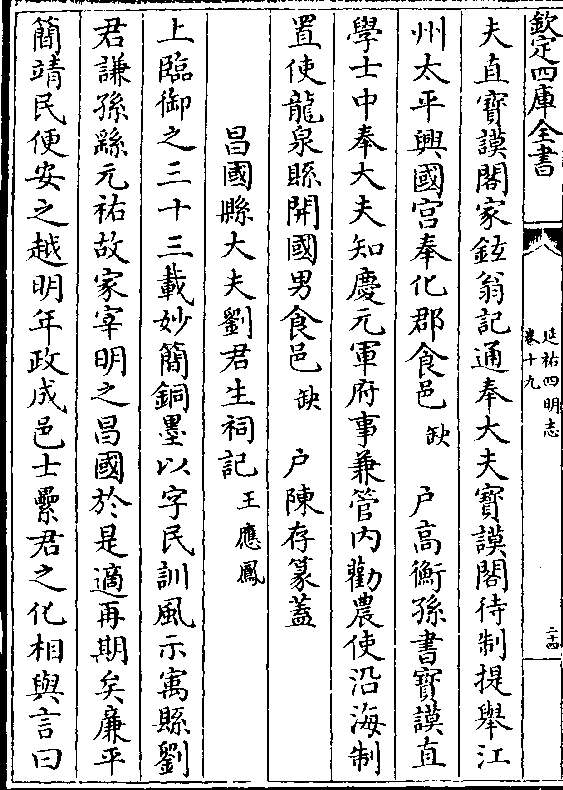 欽定四庫全書
延祐四明志
卷十九
二十四
夫直寶謨閣家鉉翁記通奉大夫寶謨閣待制提舉江
州太平興國宫奉化郡食邑缺户高衡孫書寶謨直
學士中奉大夫知慶元軍府事兼管内勸農使沿海制
置使龍泉縣開國男食邑缺户陳存篆蓋
昌國縣大夫劉君生祠記王應鳳
上臨御之三十三載妙簡銅墨以字民訓風示寓縣劉
君謙孫繇元祐故家宰明之昌國於是適再期矣廉平
簡靖民便安之越明年政成邑士纍君之化相與言曰